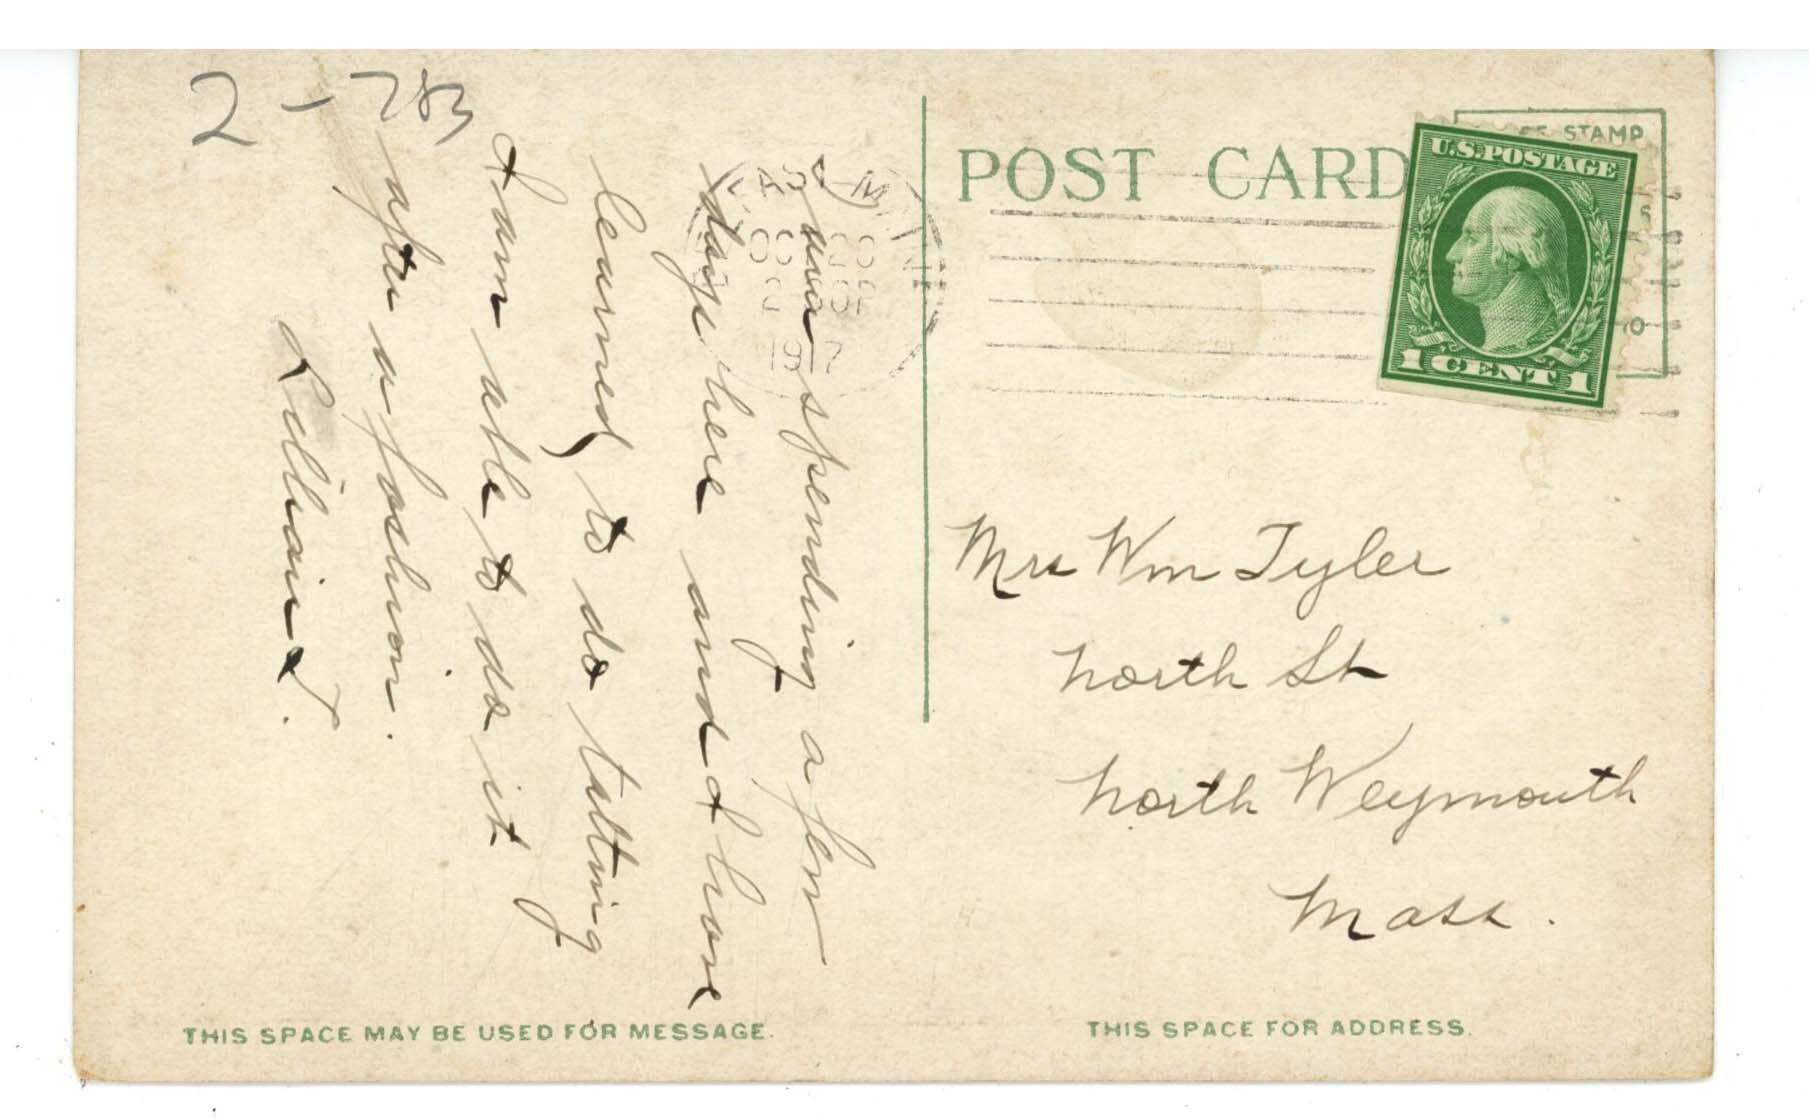 2-783
POST CARD
STAMP
U.S. POSTAGE
1 CENT 1
OCT 20
1917
I was spending a few
days here and have
learned to do tatting
I am able to do it
after a fashion.
Lillian
Mrs Wm Tyler
North St
North Weymouth
Mass.
THIS SPACE MAY BE USED FOR MESSAGE.
THIS SPACE FOR ADDRESS.